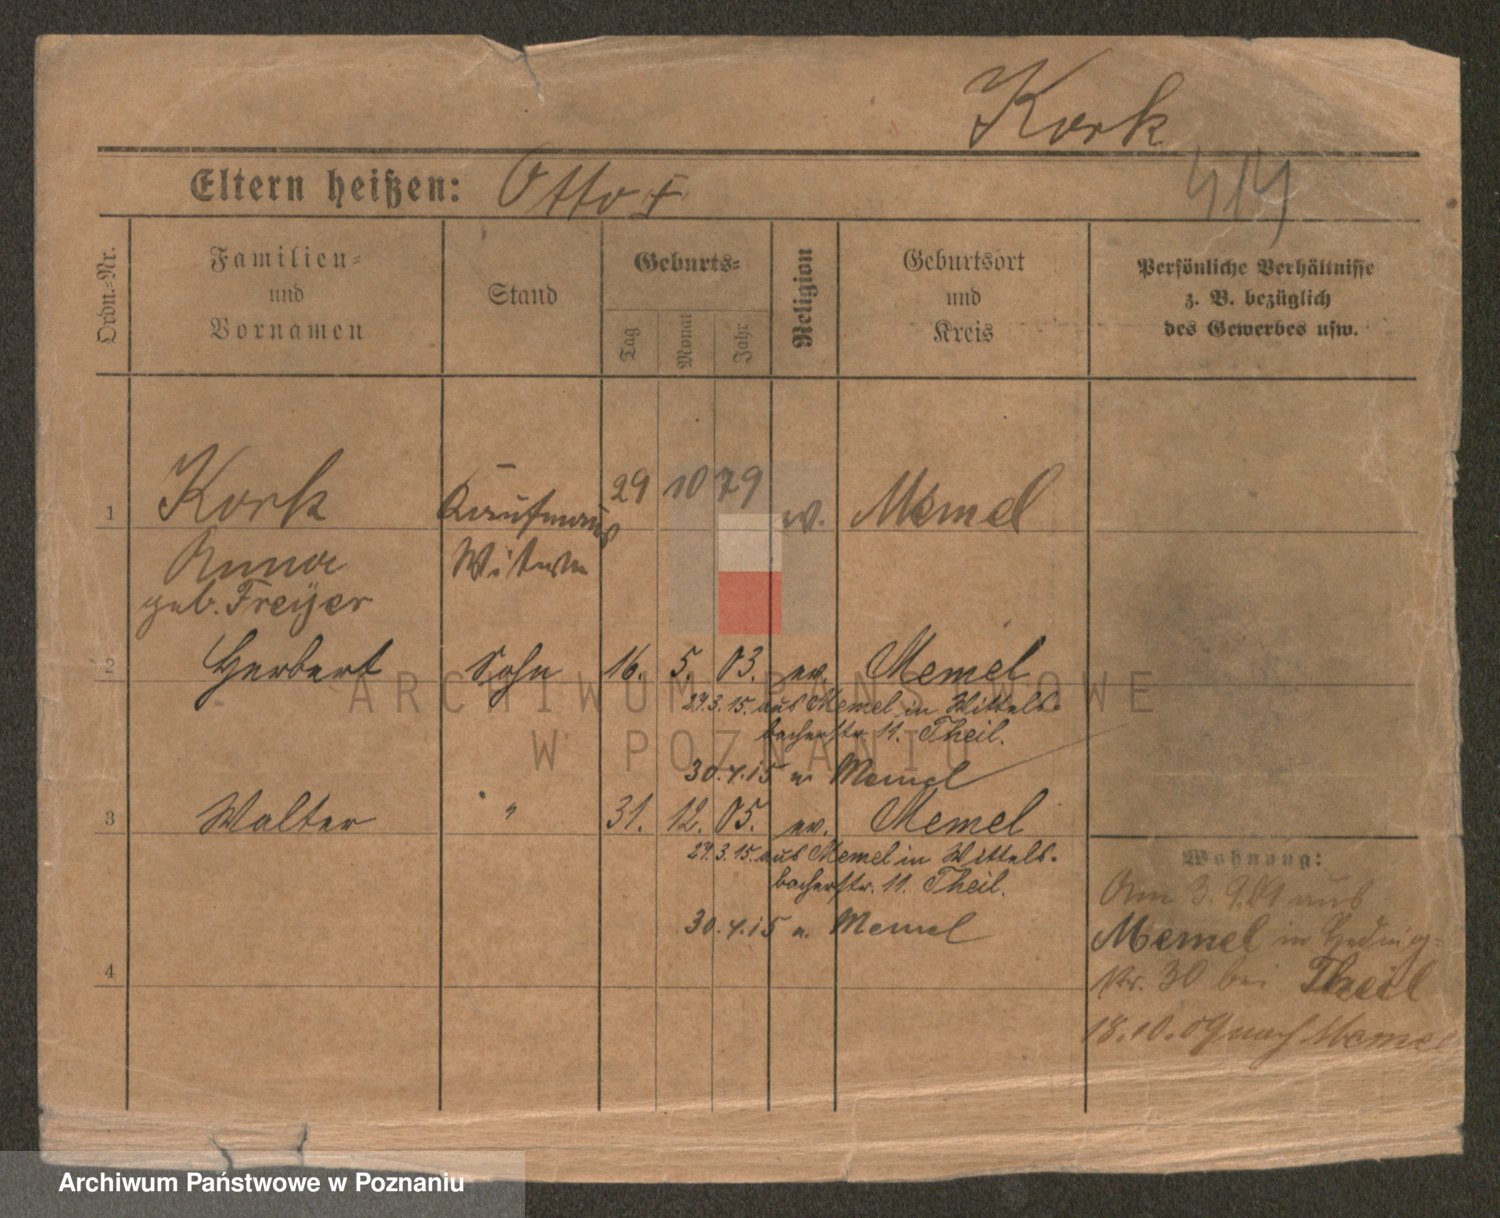 Kork
Eltern heißen: Otto †
414
Ordn.-Nr.
Familien-
und
Vornamen
Stand
Geburts-
Tag
Monat
Jahr
Religion
Geburtsort
und
Kreis
Persönliche Verhältnisse
z. B. bezüglich
des Gewerbes usw.
1 Kork Kaufmanns 29 10 79 ev. Memel
Anna Witwe
geb. Freyer
2 Herbert Sohn 16. 5. 03. ev. Memel
29.3.15. aus Memel in Wittels-
bacherstr. 11. Theil.
30.4.15 n. Memel
3 Walter " 31. 12. 05. ev. Memel
29.3.15. aus Memel in Wittels-
bacherstr. 11. Theil.
30.4.15 n. Memel
4
Wohnung:
Am 3.9.09 aus
Memel in Hedwig-
str. 30 bei Theil
18.10.09 nach Memel
ARCHIWUM PAŃSTWOWE
W POZNANIU
Archiwum Państwowe w Poznaniu